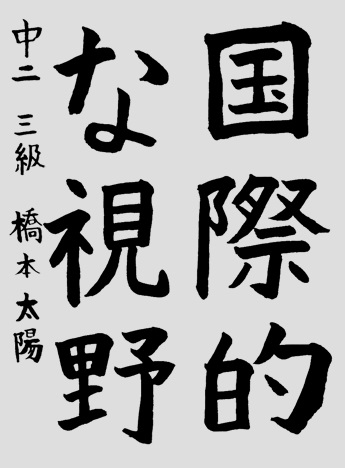 国際的
な視野
中二 三級 橋本太陽